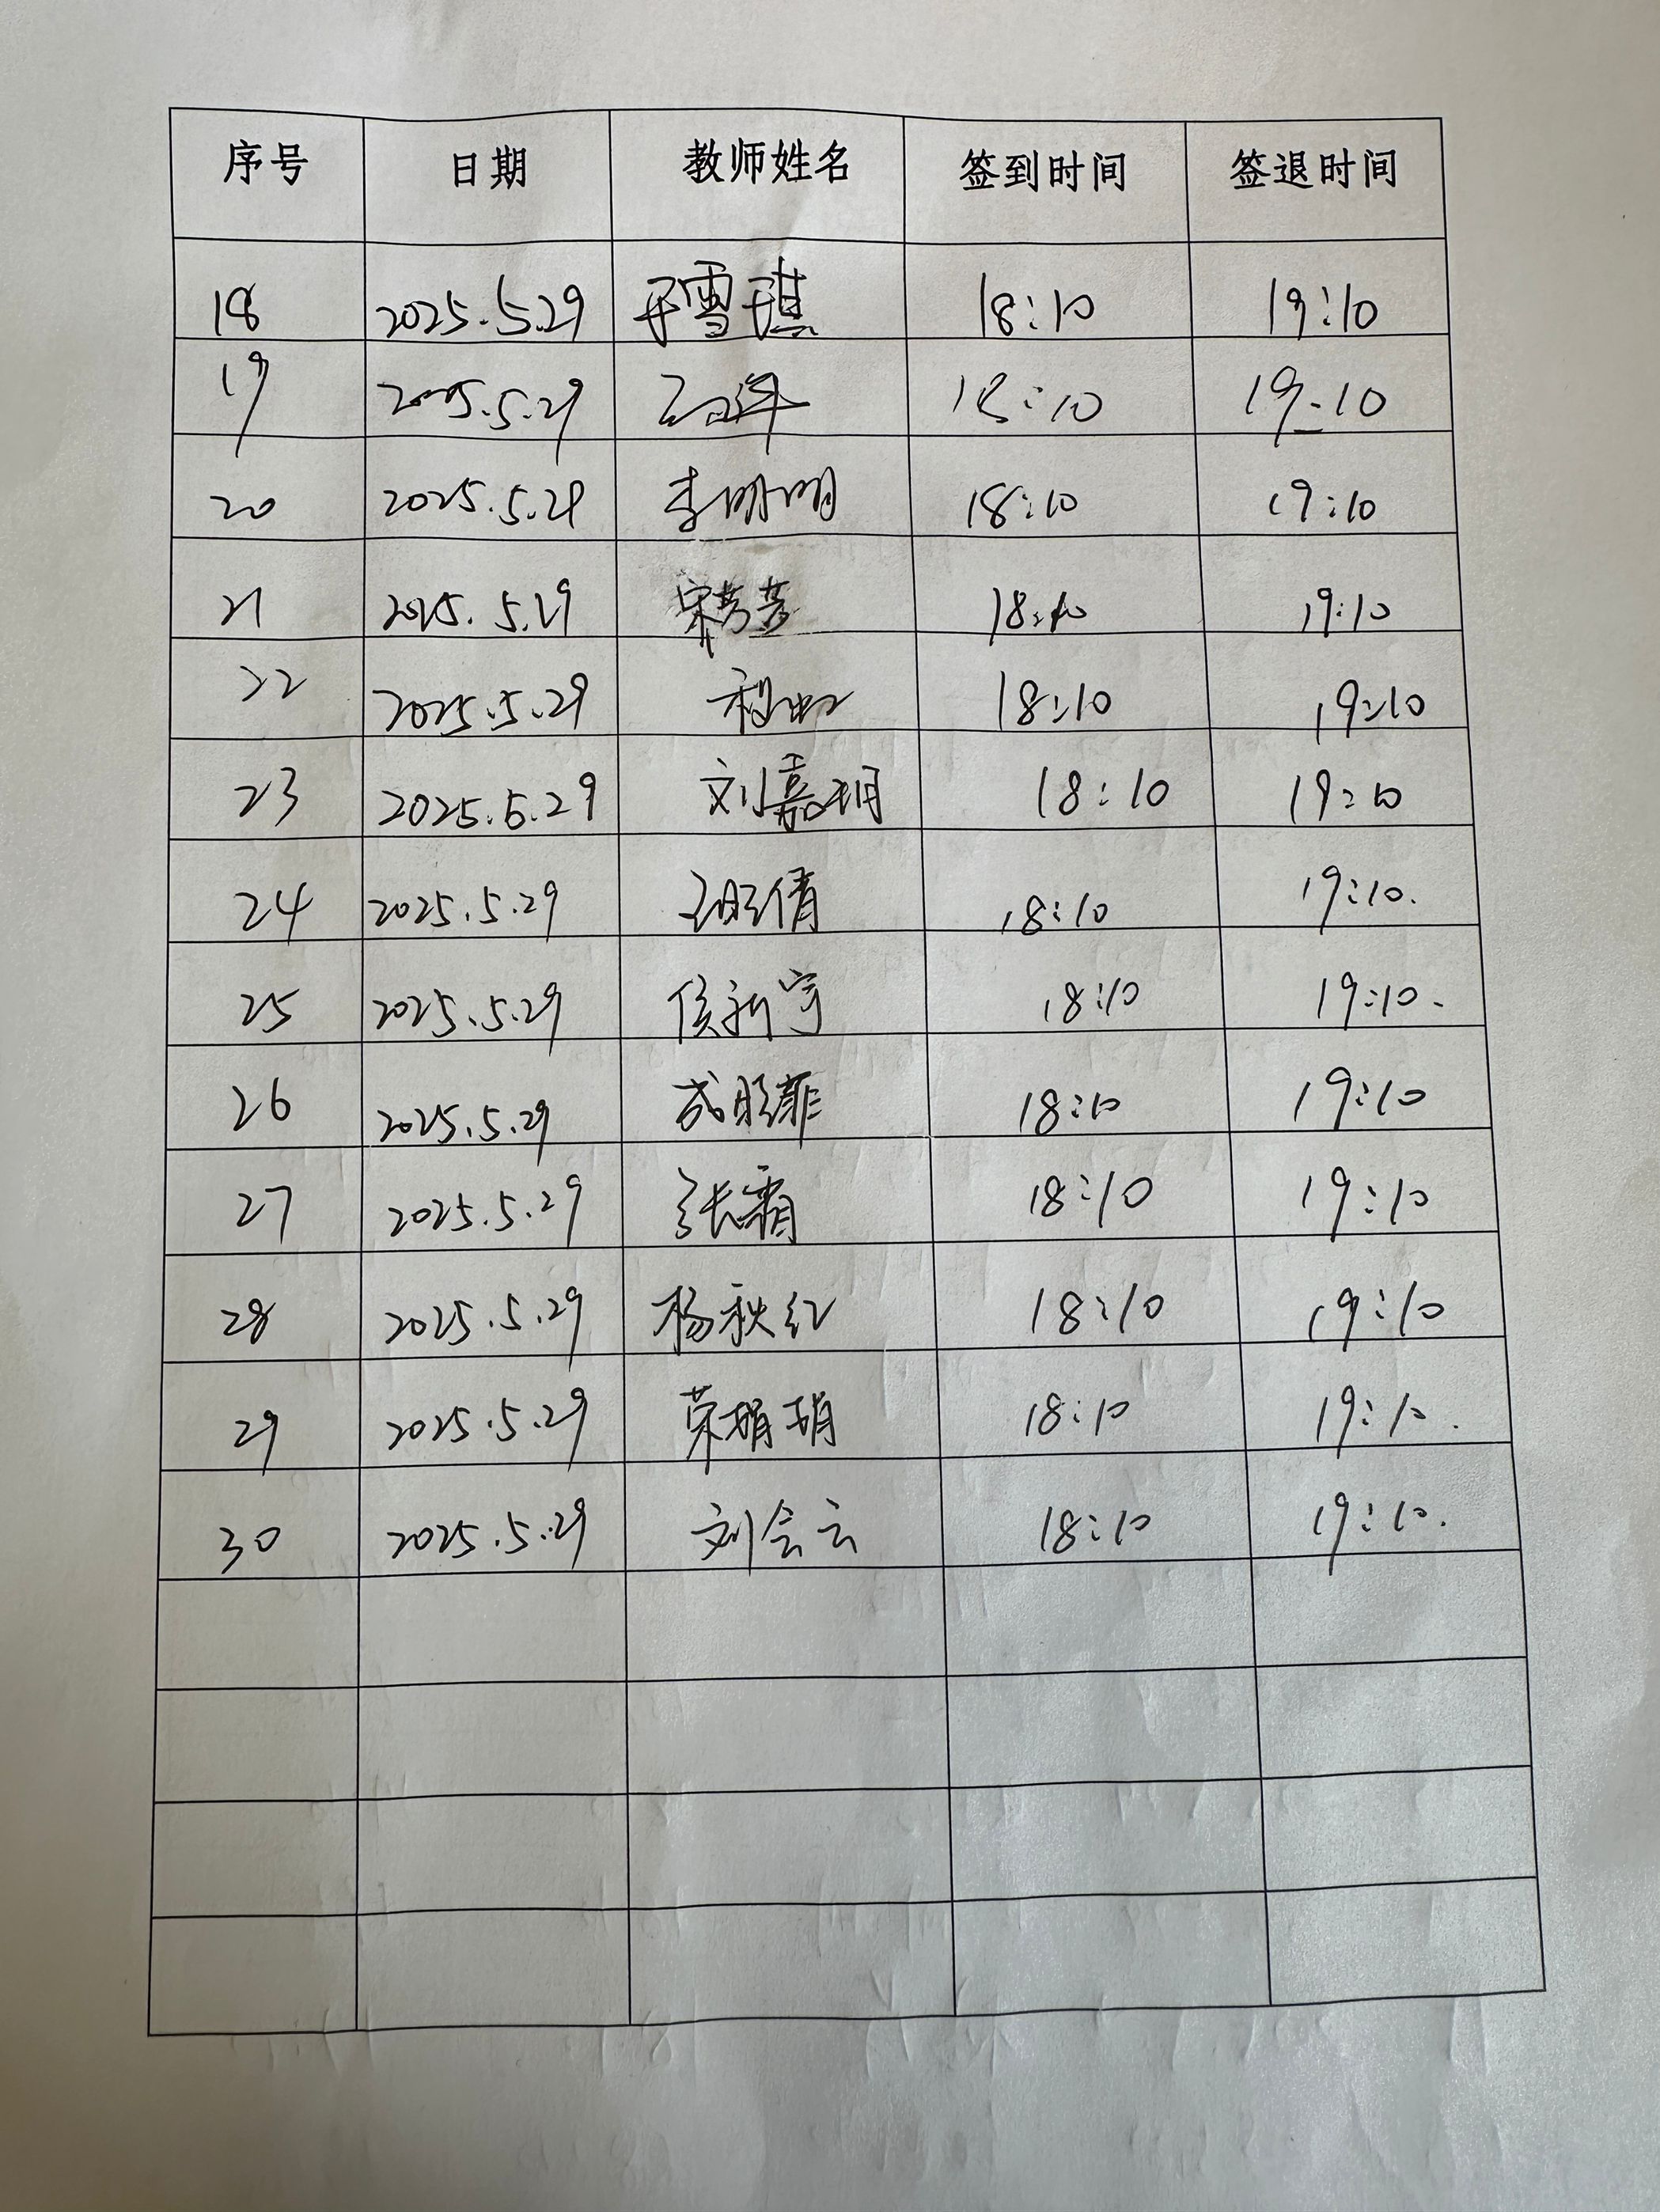 序号 日期 教师姓名 签到时间 签退时间
18 2025.5.29 雪琪 18:10 19:10
19 2025.5.29 18:10 19:10
20 2025.5.29 李明明 18:10 19:10
21 2025.5.29 宋芳芳 18:10 19:10
22 2025.5.29 程虹 18:10 19:10
23 2025.5.29 刘嘉玥 18:10 19:10
24 2025.5.29 倩 18:10 19:10.
25 2025.5.29 侯新宇 18:10 19:10.
26 2025.5.29 成胜菲 18:10 19:10
27 2025.5.29 张霜 18:10 19:10
28 2025.5.29 杨秋红 18:10 19:10
29 2025.5.29 荣娟娟 18:10 19:10.
30 2025.5.29 刘会云 18:10 19:10.